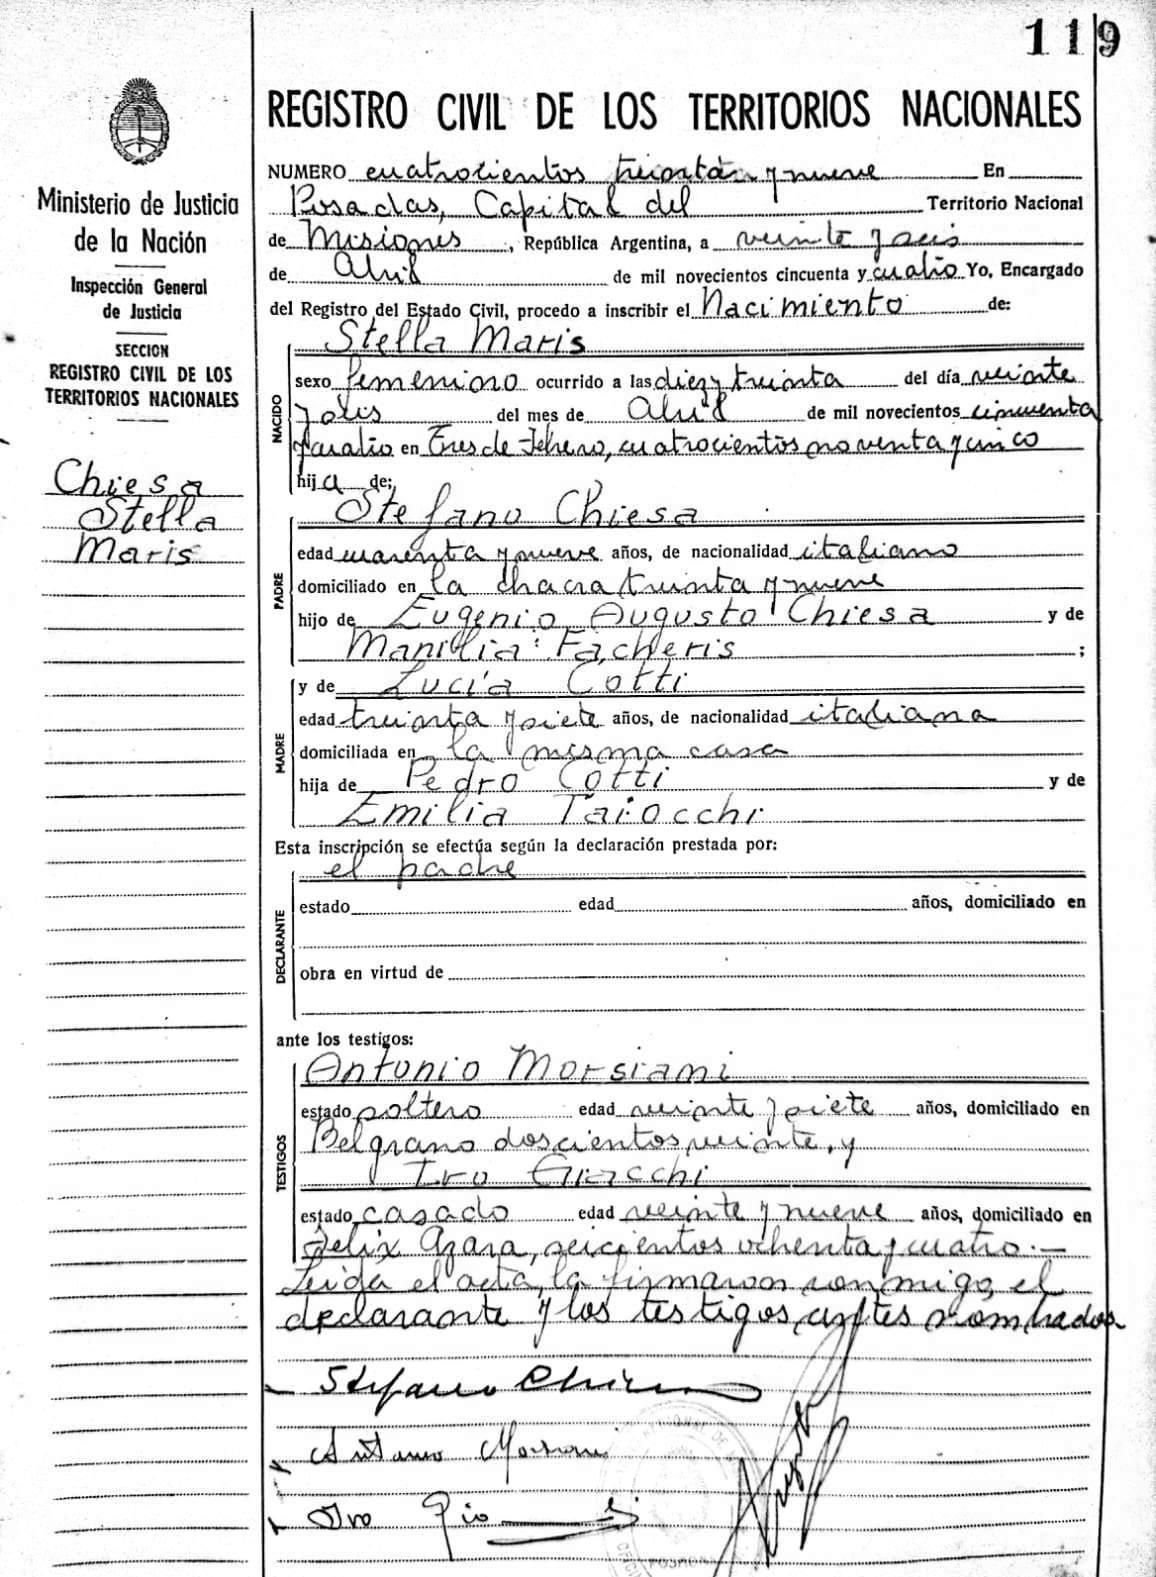 119
REGISTRO CIVIL DE LOS TERRITORIOS NACIONALES
Ministerio de Justicia
de la Nación
Inspección General
de Justicia
SECCION
REGISTRO CIVIL DE LOS
TERRITORIOS NACIONALES
Chiesa
Stella
Maris
NUMERO cuatrocientos treinta y nueve En
Posadas, Capital del Territorio Nacional
de Misiones, República Argentina, a veinte y seis
de Abril de mil novecientos cincuenta y cuatro Yo, Encargado
del Registro del Estado Civil, procedo a inscribir el Nacimiento de:
NACIDO
Stella Maris
sexo femenino ocurrido a las diez y treinta del día veinte
y dos del mes de Abril de mil novecientos cincuenta
y cuatro en Tres de Febrero, cuatrocientos noventa y cinco
hija de:
PADRE
Stefano Chiesa
edad cuarenta y nueve años, de nacionalidad italiano
domiciliado en la chacra treinta y nueve
hijo de Eugenio Augusto Chiesa y de
Manilia Facheris ;
MADRE
y de Lucía Cotti
edad treinta y siete años, de nacionalidad italiana
domiciliada en la misma casa
hija de Pedro Cotti y de
Emilia Taiocchi
Esta inscripción se efectúa según la declaración prestada por:
el padre
DECLARANTE
estado edad años, domiciliado en
obra en virtud de
ante los testigos:
TESTIGOS
Antonio Morsiani
estado soltero edad veinte y siete años, domiciliado en
Belgrano doscientos veinte, y
Ivo Giacchi
estado casado edad veinte y nueve años, domiciliado en
Felix Azara, seicientos ochenta y cuatro.—
Leida el acta, la firmaron conmigo, el
declarante y los testigos antes nombrados
Stefano Chiesa
Antonio Morsiani
Ivo